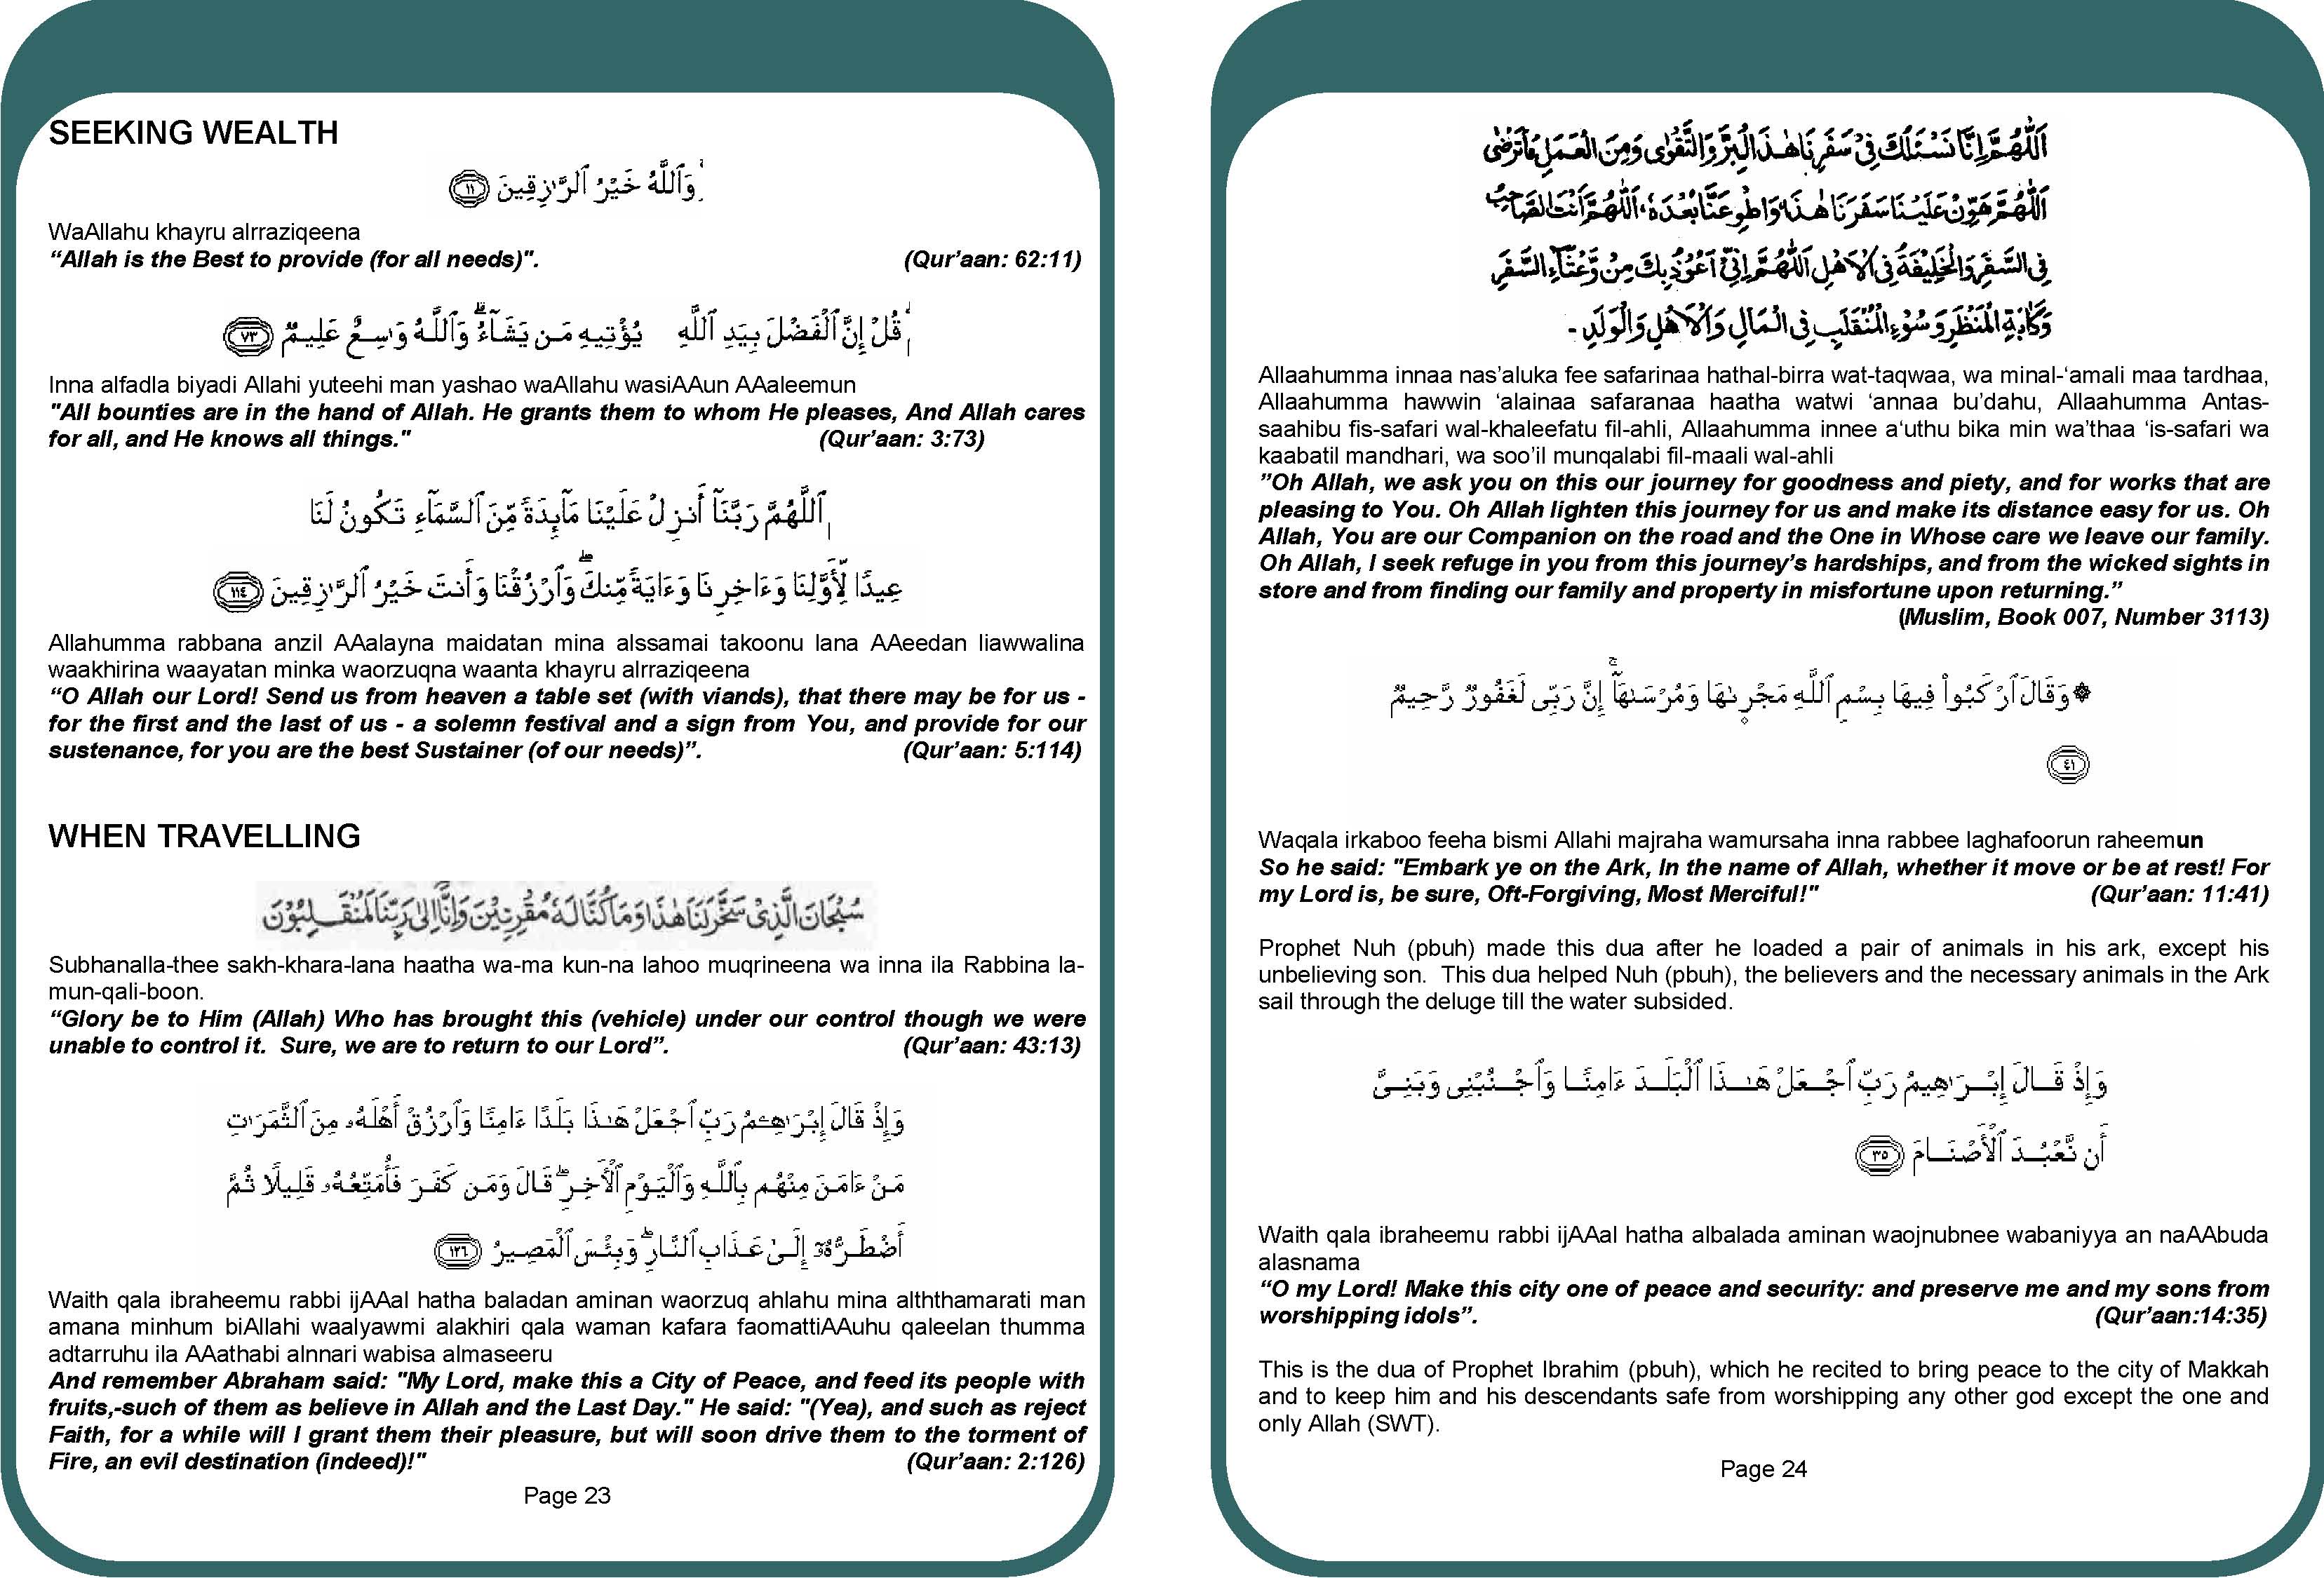 SEEKING WEALTH
وَٱللَّهُ خَيْرُ ٱلرَّٰزِقِينَ ١١
WaAllahu khayru alrraziqeena
“Allah is the Best to provide (for all needs)". (Qur’aan: 62:11)
قُلْ إِنَّ ٱلْفَضْلَ بِيَدِ ٱللَّهِ يُؤْتِيهِ مَن يَشَآءُ ۗ وَٱللَّهُ وَٰسِعٌ عَلِيمٌ ٧٣
Inna alfadla biyadi Allahi yuteehi man yashao waAllahu wasiAAun AAaleemun
"All bounties are in the hand of Allah. He grants them to whom He pleases, And Allah cares
for all, and He knows all things." (Qur’aan: 3:73)
ٱللَّهُمَّ رَبَّنَآ أَنزِلْ عَلَيْنَا مَآئِدَةً مِّنَ ٱلسَّمَآءِ تَكُونُ لَنَا
عِيدًا لِّأَوَّلِنَا وَءَاخِرِنَا وَءَايَةً مِّنكَ ۖ وَٱرْزُقْنَا وَأَنتَ خَيْرُ ٱلرَّٰزِقِينَ ١١٤
Allahumma rabbana anzil AAalayna maidatan mina alssamai takoonu lana AAeedan liawwalina
waakhirina waayatan minka waorzuqna waanta khayru alrraziqeena
“O Allah our Lord! Send us from heaven a table set (with viands), that there may be for us -
for the first and the last of us - a solemn festival and a sign from You, and provide for our
sustenance, for you are the best Sustainer (of our needs)”. (Qur’aan: 5:114)
WHEN TRAVELLING
سُبْحَانَ الَّذِىْ سَخَّرَلَنَا هٰذَا وَمَا كُنَّا لَهٗ مُقْرِنِيْنَ وَاِنَّا اِلىٰ رَبِّنَا لَمُنْقَلِبُوْنَ
Subhanalla-thee sakh-khara-lana haatha wa-ma kun-na lahoo muqrineena wa inna ila Rabbina la-
mun-qali-boon.
“Glory be to Him (Allah) Who has brought this (vehicle) under our control though we were
unable to control it.  Sure, we are to return to our Lord”. (Qur’aan: 43:13)
وَإِذْ قَالَ إِبْرَٰهِۦمُ رَبِّ ٱجْعَلْ هَـٰذَا بَلَدًا ءَامِنًا وَٱرْزُقْ أَهْلَهُۥ مِنَ ٱلثَّمَرَٰتِ
مَنْ ءَامَنَ مِنْهُم بِٱللَّهِ وَٱلْيَوْمِ ٱلْأَخِرِ ۖ قَالَ وَمَن كَفَرَ فَأُمَتِّعُهُۥ قَلِيلًا ثُمَّ
أَضْطَرُّهُۥٓ إِلَىٰ عَذَابِ ٱلنَّارِ ۖ وَبِئْسَ ٱلْمَصِيرُ ١٢٦
Waith qala ibraheemu rabbi ijAAal hatha baladan aminan waorzuq ahlahu mina alththamarati man
amana minhum biAllahi waalyawmi alakhiri qala waman kafara faomattiAAuhu qaleelan thumma
adtarruhu ila AAathabi alnnari wabisa almaseeru
And remember Abraham said: "My Lord, make this a City of Peace, and feed its people with
fruits,-such of them as believe in Allah and the Last Day." He said: "(Yea), and such as reject
Faith, for a while will I grant them their pleasure, but will soon drive them to the torment of
Fire, an evil destination (indeed)!" (Qur’aan: 2:126)
Page 23
اَللّٰهُمَّ اِنَّا نَسْئَلُكَ فِىْ سَفَرِنَا هٰذَا الْبِرَّ وَالتَّقْوٰى وَمِنَ الْعَمَلِ مَا تَرْضٰى
اَللّٰهُمَّ هَوِّنْ عَلَيْنَا سَفَرَنَا هٰذَا وَاطْوِ عَنَّا بُعْدَهٗ، اَللّٰهُمَّ اَنْتَ الصَّاحِبُ
فِى السَّفَرِ وَالْخَلِيْفَةُ فِى الْاَهْلِ اَللّٰهُمَّ اِنِّىْ اَعُوْذُ بِكَ مِنْ وَّعْثَآءِ السَّفَرِ
وَكَاٰبَةِ الْمَنْظَرِ وَسُوْءِ الْمُنْقَلَبِ فِى الْمَالِ وَالْاَهْلِ وَالْوَلَدِ -
Allaahumma innaa nas’aluka fee safarinaa hathal-birra wat-taqwaa, wa minal-‘amali maa tardhaa,
Allaahumma hawwin ‘alainaa safaranaa haatha watwi ‘annaa bu’dahu, Allaahumma Antas-
saahibu fis-safari wal-khaleefatu fil-ahli, Allaahumma innee a‘uthu bika min wa’thaa ‘is-safari wa
kaabatil mandhari, wa soo’il munqalabi fil-maali wal-ahli
”Oh Allah, we ask you on this our journey for goodness and piety, and for works that are
pleasing to You. Oh Allah lighten this journey for us and make its distance easy for us. Oh
Allah, You are our Companion on the road and the One in Whose care we leave our family.
Oh Allah, I seek refuge in you from this journey’s hardships, and from the wicked sights in
store and from finding our family and property in misfortune upon returning.”
(Muslim, Book 007, Number 3113)
۞ وَقَالَ ٱرْكَبُوا۟ فِيهَا بِسْمِ ٱللَّهِ مَجْر۪ىٰهَا وَمُرْسَىٰهَآ ۚ إِنَّ رَبِّى لَغَفُورٌ رَّحِيمٌ
٤١
Waqala irkaboo feeha bismi Allahi majraha wamursaha inna rabbee laghafoorun raheemun
So he said: "Embark ye on the Ark, In the name of Allah, whether it move or be at rest! For
my Lord is, be sure, Oft-Forgiving, Most Merciful!" (Qur’aan: 11:41)
Prophet Nuh (pbuh) made this dua after he loaded a pair of animals in his ark, except his
unbelieving son.  This dua helped Nuh (pbuh), the believers and the necessary animals in the Ark
sail through the deluge till the water subsided.
وَإِذْ قَالَ إِبْرَٰهِيمُ رَبِّ ٱجْعَلْ هَـٰذَا ٱلْبَلَدَ ءَامِنًا وَٱجْنُبْنِى وَبَنِىَّ
أَن نَّعْبُدَ ٱلْأَصْنَامَ ٣٥
Waith qala ibraheemu rabbi ijAAal hatha albalada aminan waojnubnee wabaniyya an naAAbuda
alasnama
“O my Lord! Make this city one of peace and security: and preserve me and my sons from
worshipping idols”. (Qur’aan:14:35)
This is the dua of Prophet Ibrahim (pbuh), which he recited to bring peace to the city of Makkah
and to keep him and his descendants safe from worshipping any other god except the one and
only Allah (SWT).
Page 24